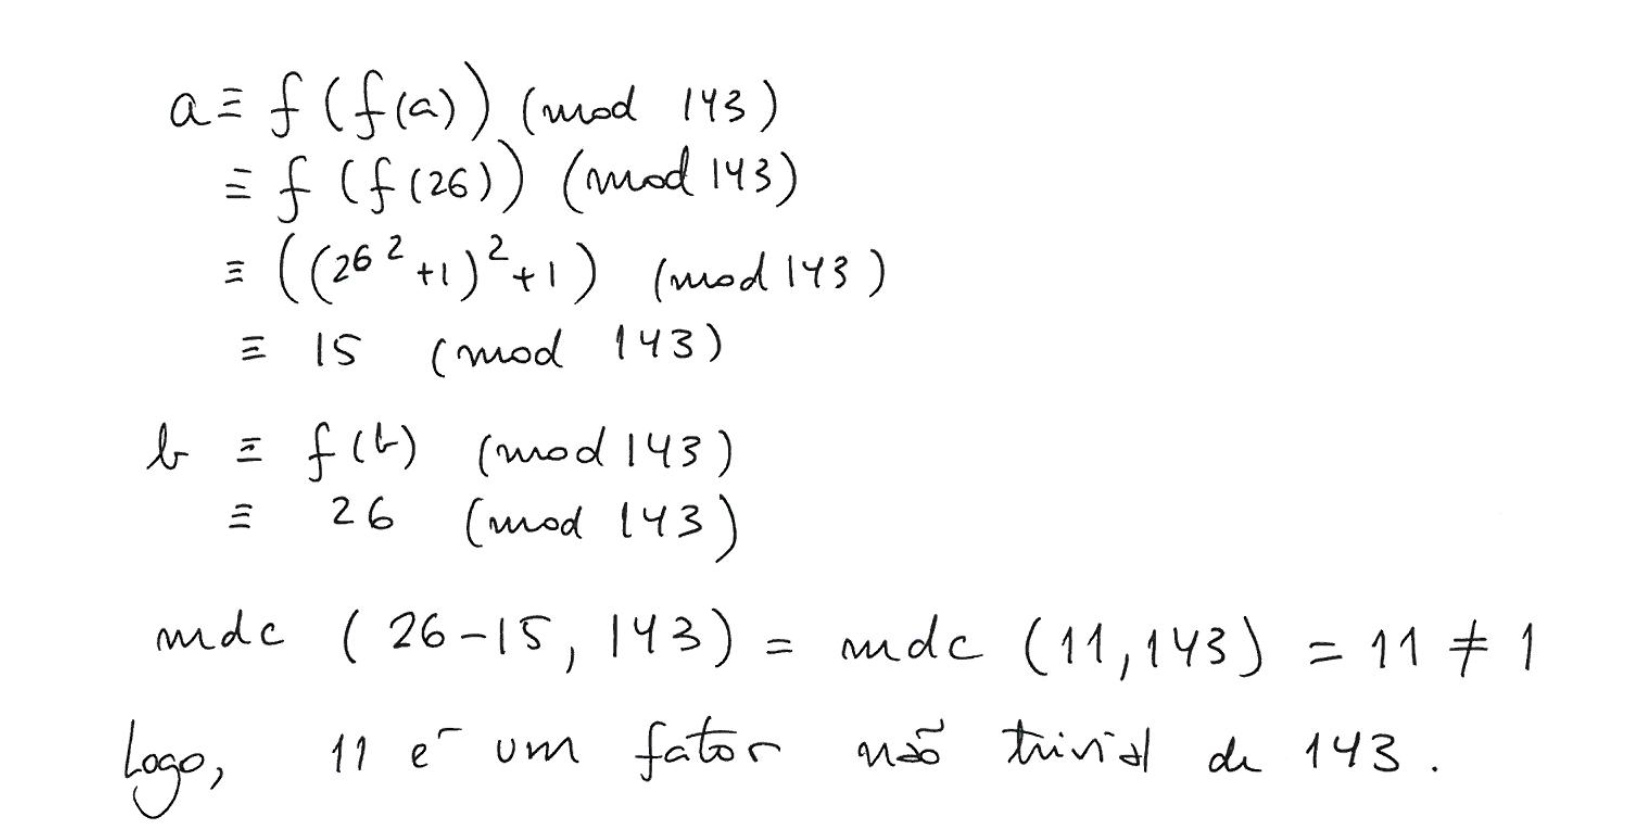 a ≡ f(f(a)) (mod 143)
≡ f(f(26)) (mod 143)
≡ ((26² +1)² +1) (mod 143)
≡ 15 (mod 143)
b ≡ f(b) (mod 143)
≡ 26 (mod 143)
mdc (26-15, 143) = mdc (11, 143) = 11 ≠ 1
Logo, 11 é um fator não trivial de 143.